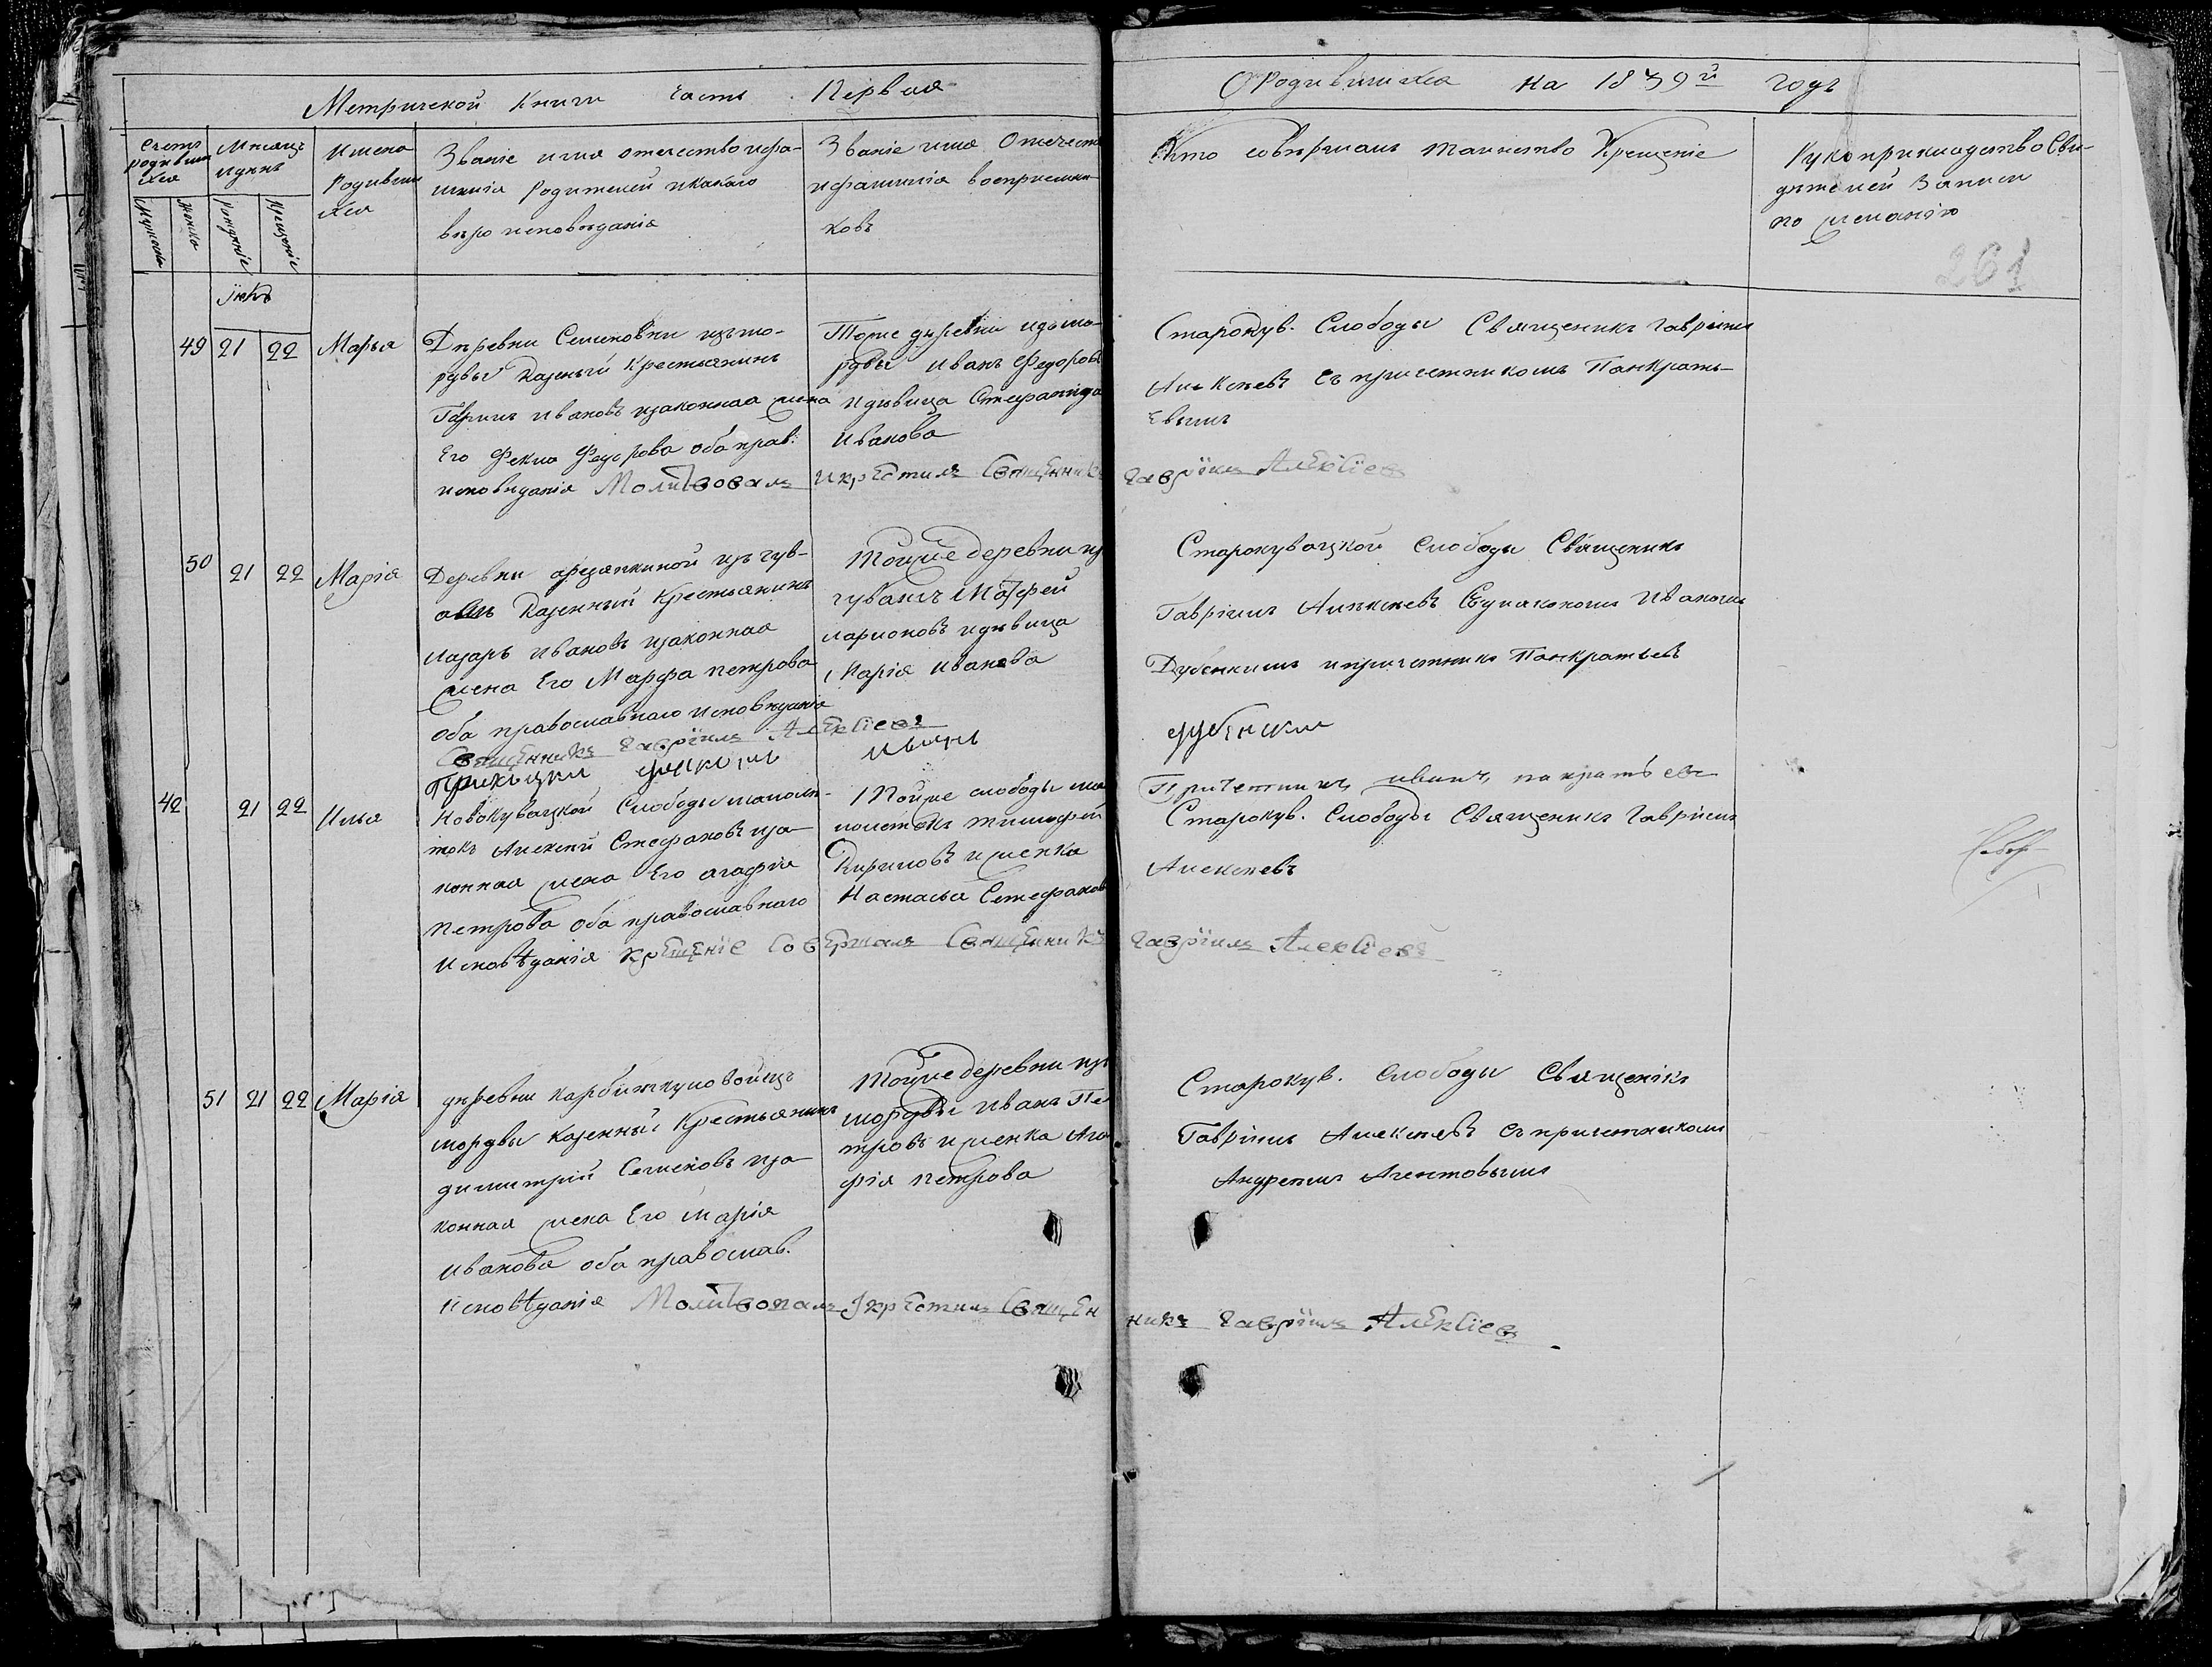 Метрической Книги часть Первая
О Родившихся на 1839й годъ
Счетъ родившихся
Мужеска
Женска
Месяцъ и день
Рожденіе
Крещеніе
Имена Родившихся
Званіе имя отечество и фа-
милія Родителей и какаго
вероисповеданія
Званіе имя Отечест
и фамилія восприемни-
ковъ
Кто совершалъ таинство Крещеніе
Рукоприкладство Сви-
детелей Записи
по желанію
261
49 21 22 Марья
Деревни Семеновки изъ мо-
рдвы Казеный Крестьянинъ
Гаврилъ Ивановъ и законная жена
Его Фекла Федорова оба прав.
исповеданія Молитвовалъ и крЕстилъ СвящЕнникъ Гавріилъ АлЕксіев
Тоже деревни изъ мо-
рдвы Иванъ Федоровъ
и девица Стефанида
Иванова
Старокув. Слободы Священикъ Гавріилъ
Алексеевъ съ причетникомъ Панкрать-
Евымъ
50 21 22 Марія
Деревни изъ чув-
ашъ Казенный Крестьянинъ
лазарь Ивановъ и законная
жена Его Марфа петрова
оба православнаго исповеданія
СвящЕнникъ Гавріилъ АлЕксіевъ
Тойже деревни из
чувашъ Матфей
ларионовъ и девица
Марія Иванова
Старокувацкой Слободы Священикъ
Гавріилъ Алексеевъ Съ диакономъ Иваномъ
Дубенкимъ и причетникъ Панкратьевъ
Иванъ
дубЕнским
Причетникъ иванъ панкратьевъ
42 21 22 Илья
Новокувацкой Слободы малоле-
токъ Алексей Стефановъ и за-
конная жена Его агафія
петрова оба православнаго
Исповѣданія крЕщЕніе СовЕршалъ СвящЕнникъ Гавріилъ Алексіевъ
Тойже слободы ма
лолетокъ тимофей
Кириловъ и женка
Настасья Стефанов
Старокув. Слободы Священикъ Гавріилъ
Алексеевъ
51 21 22 Марія
деревни изъ
мордвы казенный Крестьянинъ
димитрій Семеновъ и за-
конная жена Его Марія
Иванова оба православ.
исповѣданія Молитвовалъ І крЕстилъ СвящЕнникъ Гавріилъ АлЕксіев
Тойже деревни изъ
мордвы Иванъ Пе
тровъ и женка Ага
фія петрова
Старокув. Слободы Священікъ
Гавріилъ Алексеевъ съ причетникомъ
Андреемъ